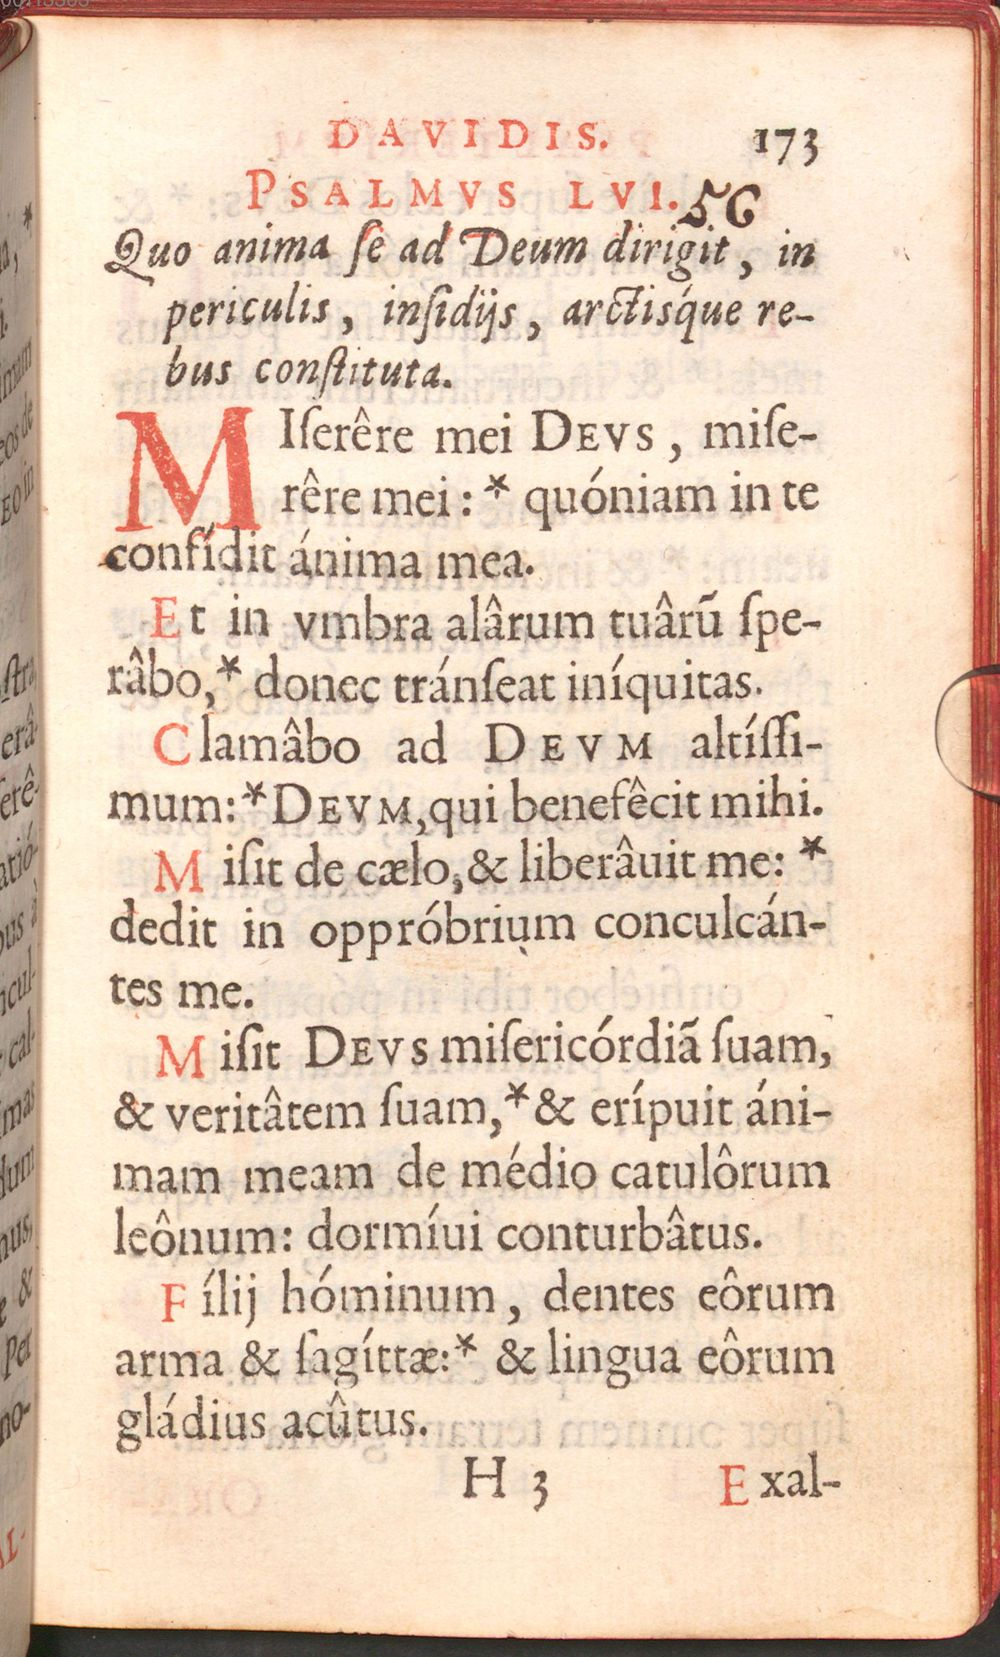 DAVIDIS. 173
PSALMVS LVI. 56
Quo anima ſe ad Deum dirigit, in
periculis, inſidijs, arctiśque re-
bus conſtituta.
MIſerêre mei DEVS, miſe-
rêre mei: * quóniam in te
confídit ánima mea.
Et in vmbra alârum tuârũ ſpe-
râbo, * donec tránſeat iníquitas.
Clamâbo ad DEVM altíſſi-
mum: * DEVM, qui benefêcit mihi.
Miſit de cælo, & liberâuit me: *
dedit in oppróbrium conculcán-
tes me.
Miſit DEVS miſericórdiã ſuam,
& veritâtem ſuam, * & erípuit áni-
mam meam de médio catulôrum
leônum: dormíui conturbâtus.
Fílij hóminum, dentes eôrum
arma & ſagíttæ: * & lingua eôrum
gládius acûtus.
H 3 Exal-